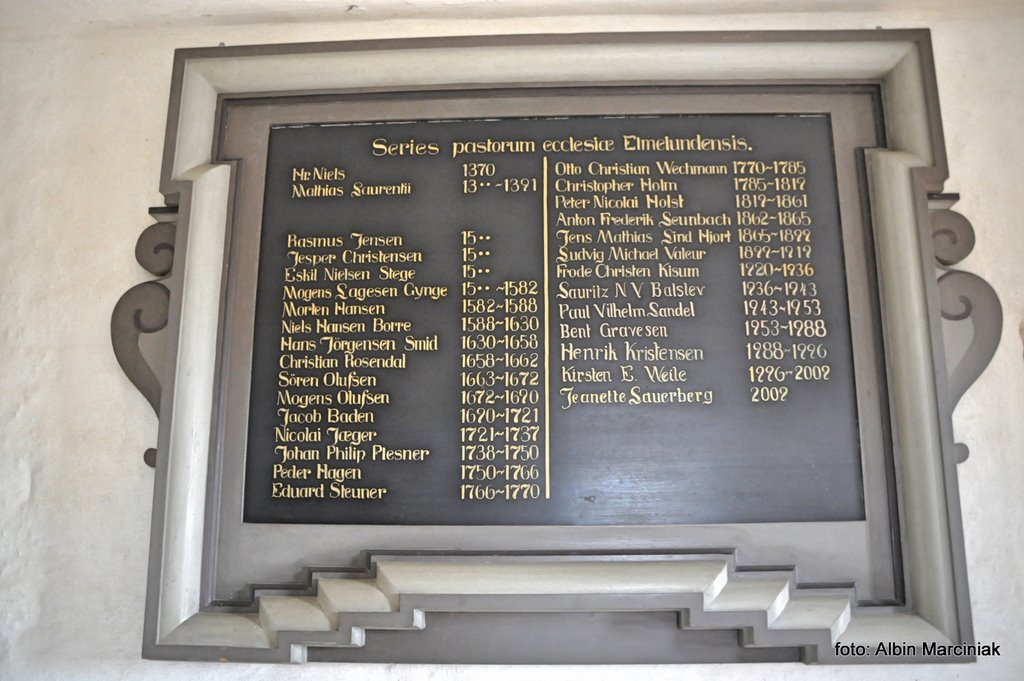 Series pastorum ecclesiæ Elmelundensis.
Hr Niels 1370
Mathias Laurentii 13·· ~1391
Rasmus Jensen 15··
Jesper Christensen 15··
Eskil Nielsen Stege 15··
Mogens Lagesen Gynge 15·· ~1582
Morten Hansen 1582~1588
Niels Hansen Borre 1588~1630
Hans Jörgensen Smid 1630~1658
Christian Rosendal 1658~1662
Sören Olufsen 1663~1672
Mogens Olufsen 1672~1690
Jacob Baden 1690~1721
Nicolai Jæger 1721~1737
Johan Philip Plesner 1738~1750
Peder Hagen 1750~1766
Eduard Steuner 1766~1770
Otto Christian Wechmann 1770~1785
Christopher Holm 1785~1819
Peter Nicolai Holst 1819~1861
Anton Frederik Leunbach 1862~1865
Jens Mathias Lind Hjort 1865~1899
Ludvig Michael Valeur 1899~1919
Frode Christen Kisum 1920~1936
Lauritz N V Balslev 1936~1943
Paul Vilhelm Sandel 1943~1953
Bent Gravesen 1953~1988
Henrik Kristensen 1988~1996
Kirsten E. Weile 1996~2009
Jeanette Sauerberg 2009
foto: Albin Marciniak